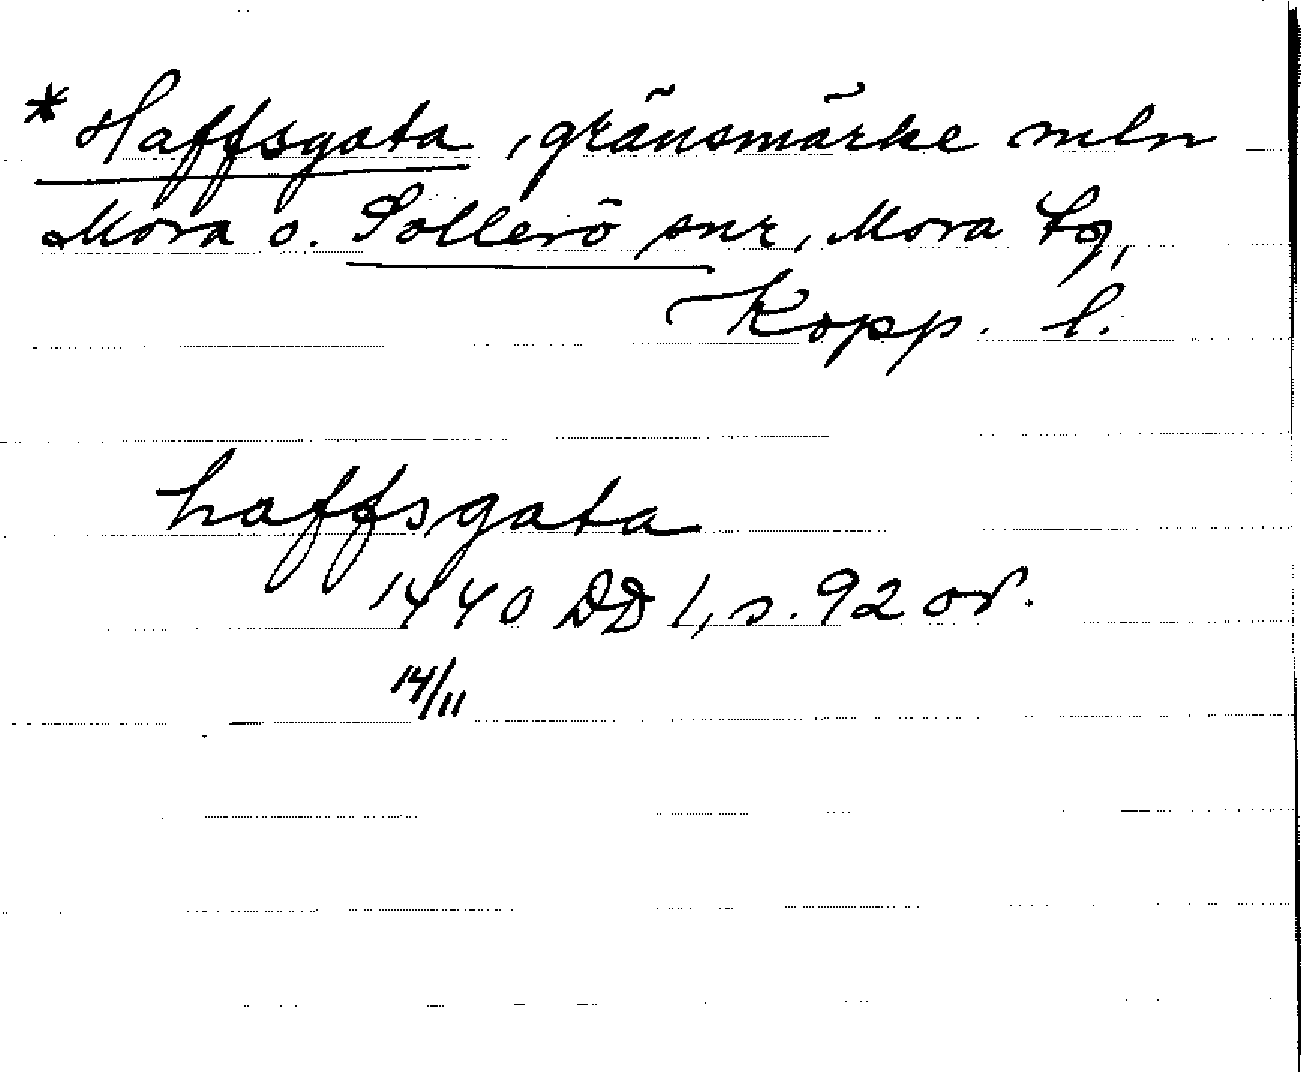 * Haffsgata, gränsmärke mln
Mora o. Sollerö snr, Mora tg,
Kopp. l.
haffsgata
1440 DD 1, s. 92 or.
14/11